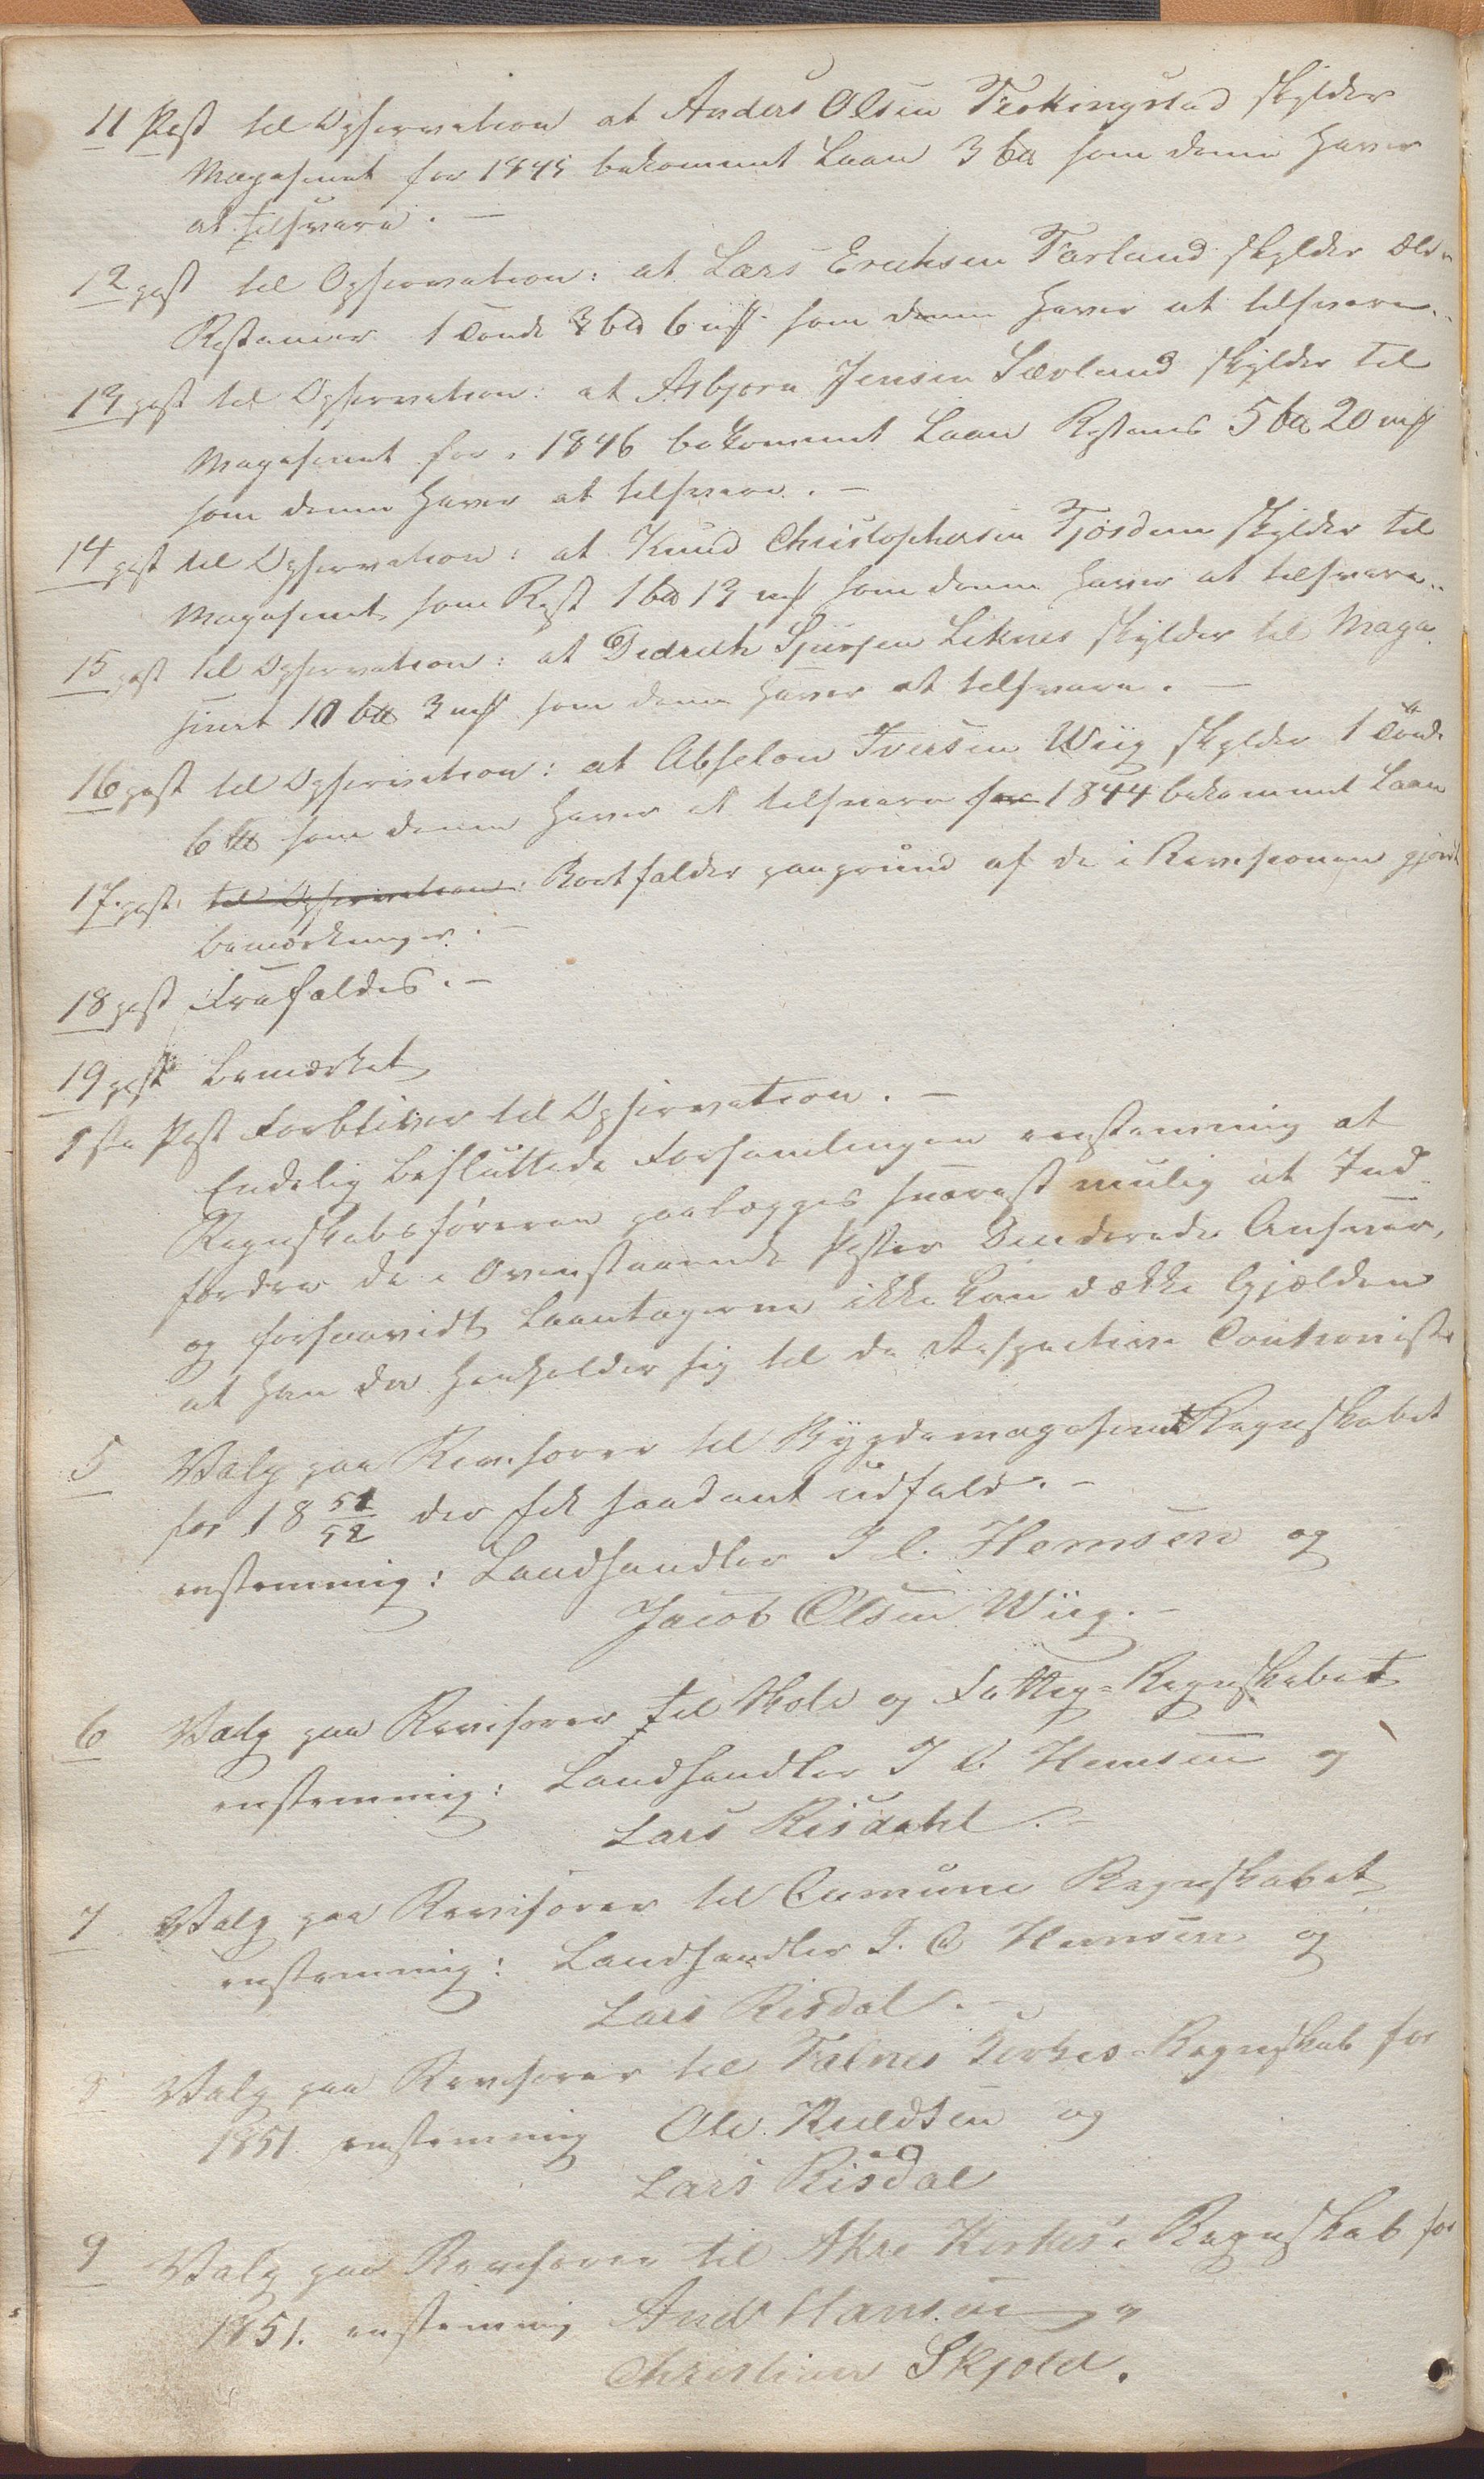 11 Post til Opservation at Anders Olsen Ferkingstad skylder
Magasinet for 1845 bekommet Laan 3 btt som denne haver
at tilsvare. —
12 post til Opservation: at Lars Ericksen Tarland skylder Ældre
Restancer 1 Tønde 3 btt 6 mrk som denne haver at tilsvare. .
13 post til Opservation: at Asbjørn Jensen Sævland skylder til
Magasinet for 1846 bekommet Laan Restans 5 btt 20 mrk
som denne haver at tilsvare. —
14 post til Opservation: at Knud Christophersen Tjøsdem skylder til
Magasinet som Rest 1 btt 13 mrk som denne haver at tilsvare. .
15 post til Opservation: at Didrich Sjursen Liknes skylder til Maga
sinet 10 btt 3 mrk som denne haver at tilsvare. —
16 post til Opservation: at Abselon Iversen Wiig skylder 1 Tønde
6 btt som denne haver at tilsvare for 1844 bekommet Laan
17. post til Opservation: Bortfalder paagrund af de i Revisionen gjorte
bemærkninger. —
18 post Frafaldes. —
19 post bemærket
1ste Post Forbliver til Opservation. —
Endelig besluttede Forsamlingen enstemmig at
Regnskabsføreren paalægges snarest mulig at Ind-
fordre de i Ovenstaaende Poster Ansvar,
og forsaavidt Laantagerne ikke kan dække Gjælden
at han da henholder sig til de Respective Cautionister
5 Valg paa Revisorer til Bygdemagasinet Regnskabet
for 18 51/52 der fik saadant udfald. —
enstemmig: Landhandler I C. Hemsen og
Jacob Olsen Wiig. —
6 Valg paa Revisorer til Skole og Fattig=Regnskabet
enstemmig: Landhandler I C. Hemsen og
Lars Risdahl. —
7 Valg paa Revisorer til Comune Regnskabet
enstemmig: Landhandler I. C Hemsen og
Lars Risdal. —
8 Valg paa Revisorer til Falnes Kirkes Regnskab for
1851. enstemmig Ole Knudsen og
Lars Risdal
9 Valg paa Revisorer til Akre Kirkes Regnskab for
1851. enstemmig And Hansen og
Christian Skjold.